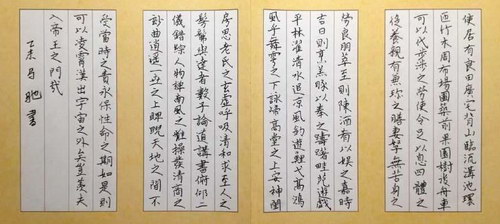 使居有良田廣宅背山臨流溝池環
匝竹木周布場圃築前果園樹後舟車
可以代步涉之勞使令足以息四體之
役養親有兼珍之膳妻孥無苦身之
勞良朋萃至則陳酒肴以娛之嘉時
吉日則烹羔豚以奉之躊躇畦苑遊戲
平林濯清水追涼風釣遊鯉弋高鴻
風乎舞雩之下詠歸高堂之上安神閨
房思老氏之玄虛呼吸清和求至人之
髣髴與達者數子論道講書俯仰二
儀錯綜人物彈南風之雅操發清商之
妙曲逍遙一世之上睥睨天地之間不
受當時之責永保性命之期如是則
可以凌霄漢出宇宙之外矣豈羨夫
入帝王之門哉
馳書